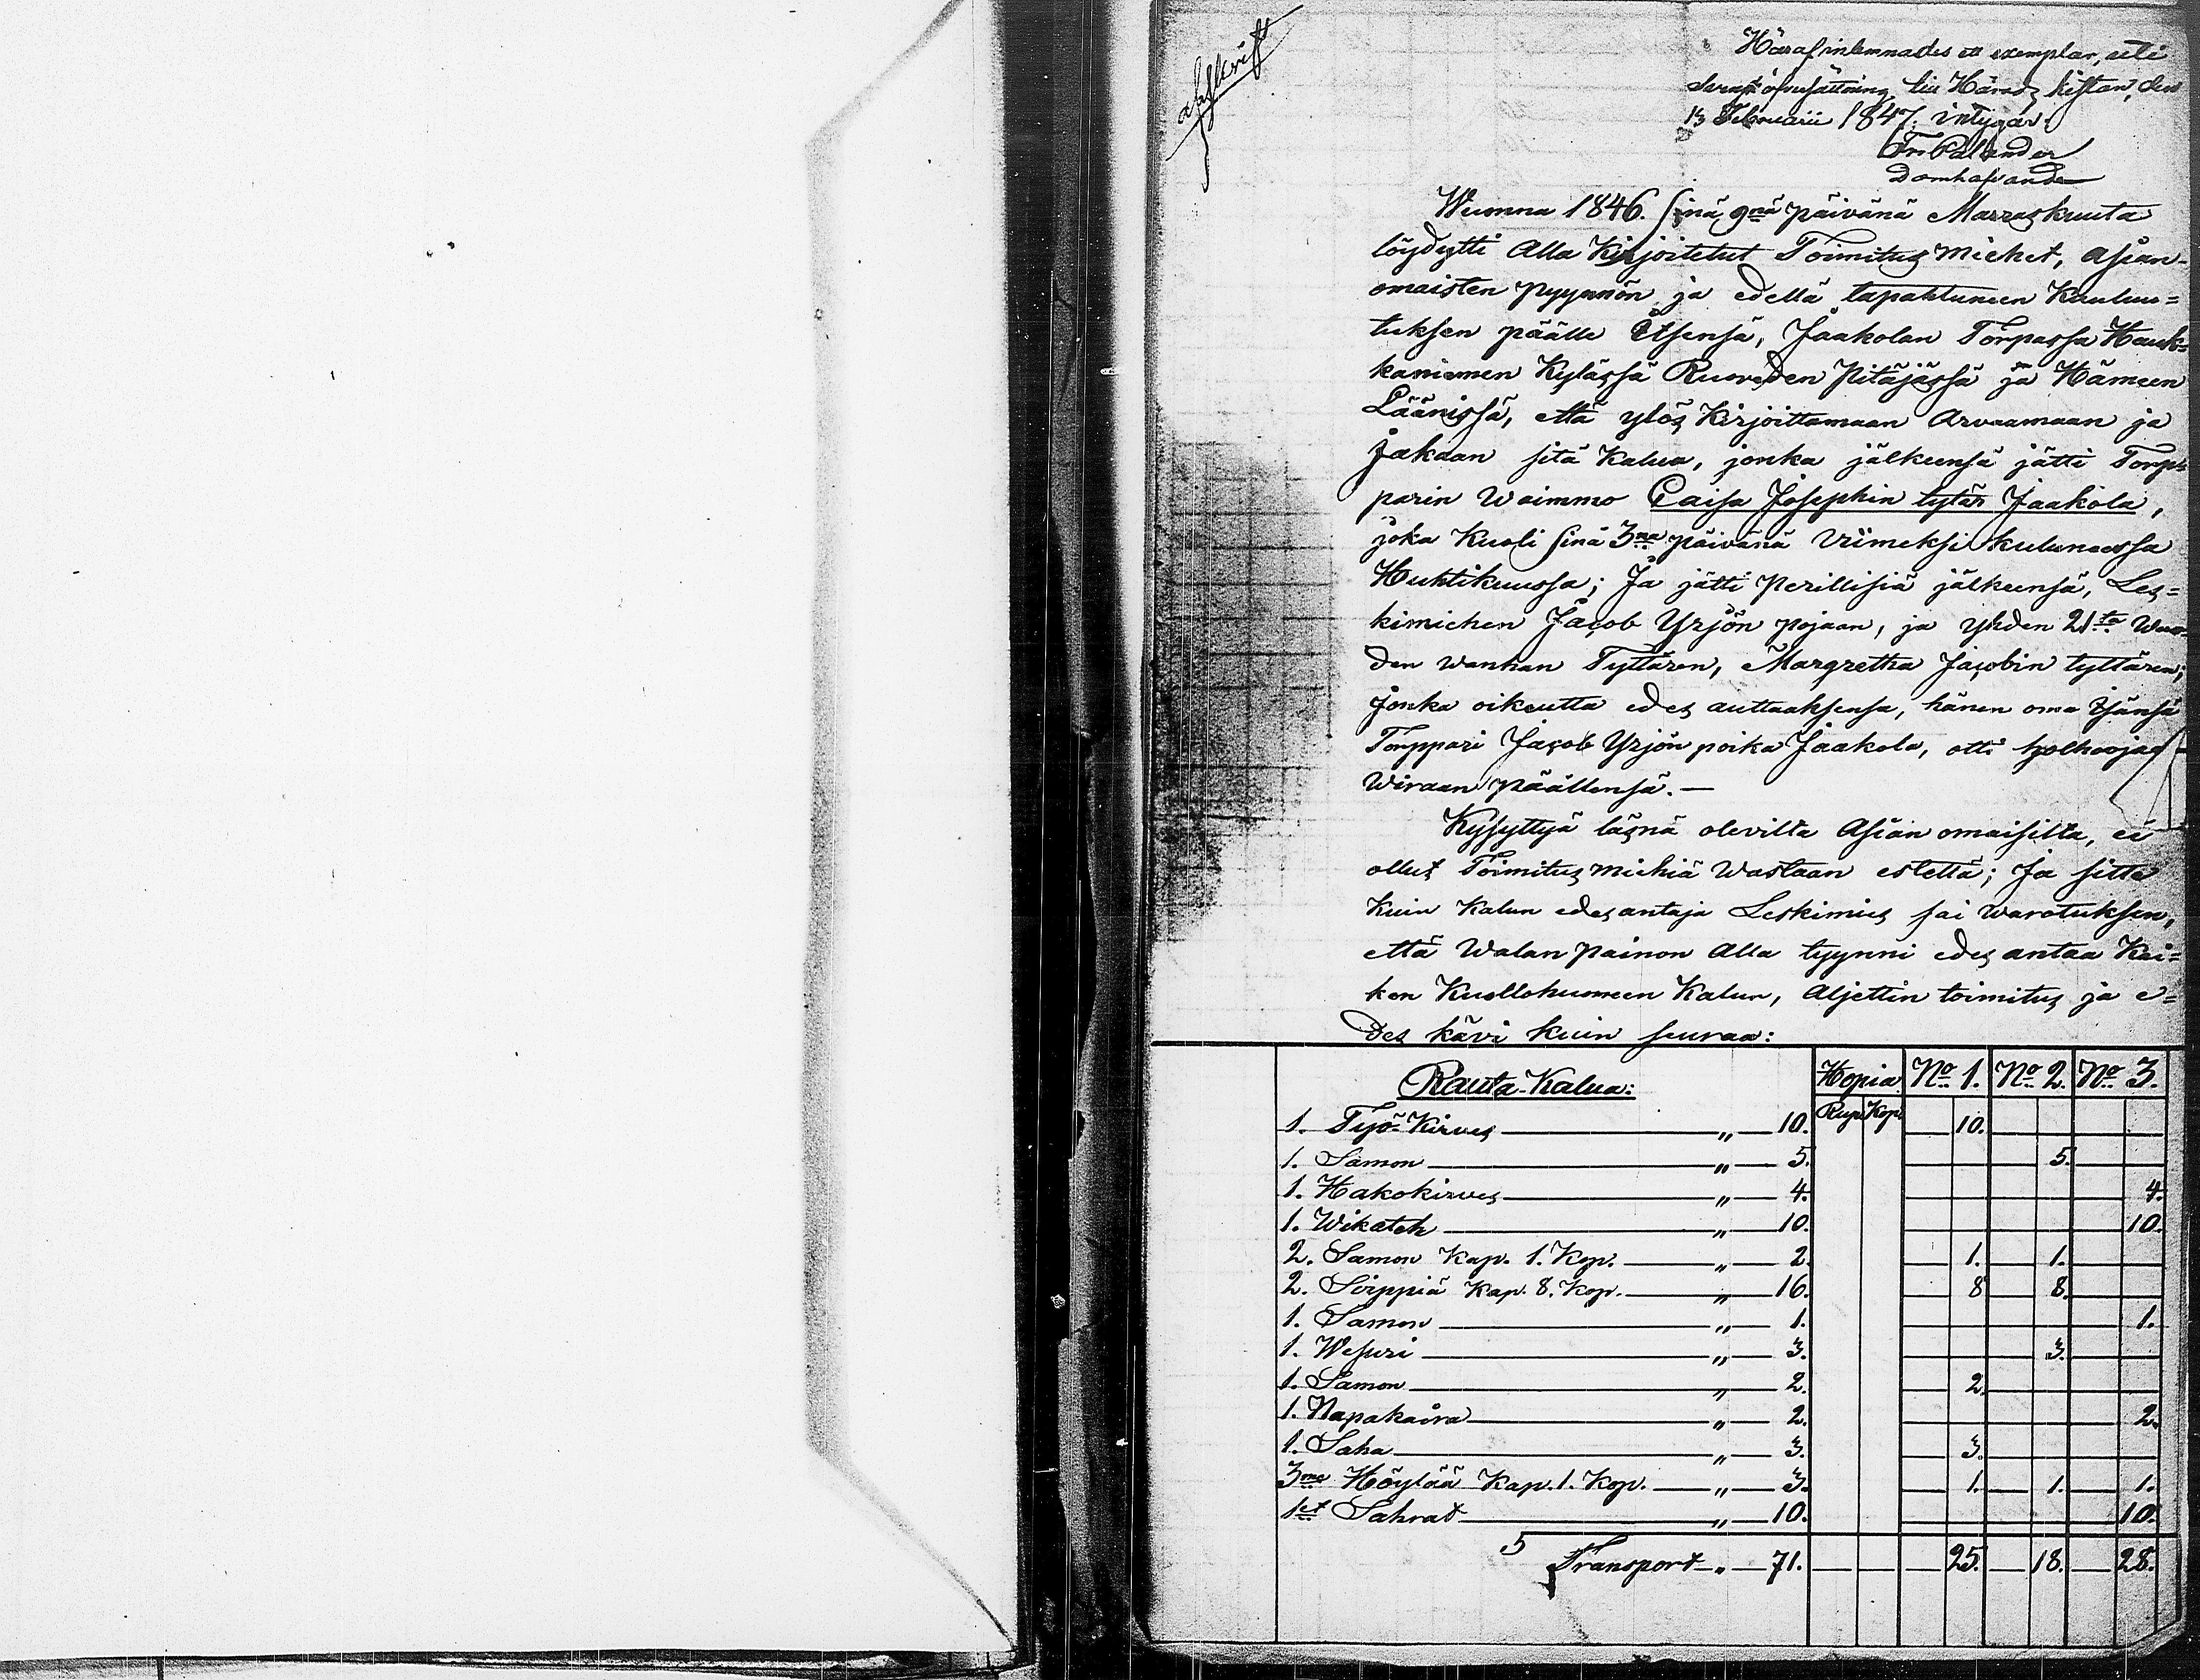 afskrift
Häraf inlemnades ett exemplar, uti
svensk öfversättning till Härads kistan, den
13 Februarii 1847. intygar.
Fr. Palander
Domhafvande
Wuonna 1846. sinä 9nä päivänä Marraskuuta
löydytti Alla Kirjoitetut Toimitus miehet, Asian-
omaisten pyynnön ja edellä tapahtuneen Kuuluu=
tuksen päälle Itsensä, Jaakolan Torpassa Hauk=
kaniemen Kylässä Ruoveden Pitäjässä ja Hämeen
Läänissä, että ylös Kirjoittamaan Arvaamaan ja
Jakaan sitä Kalua, jonka jälkeensä jätti Torp=
parin Waimmo Caisa Josephin tytär Jaakola,
joka Kuoli sinä 3na päivänä viimeksi kuluneessa
Huhtikuussa; Ja jätti Perillisiä jälkeensä, Les=
kimiehen Jacob Yrjön pojaan, ja yhden 21ta Wuo-
den wanhan Tyttären, Margretha Jacobin tyttären;
Jonka oikeutta edes auttaaksensa, hänen oma Isänsä
Torppari Jacob Yrjön poika Jaakola, otti holhoojan
Wiraan päällensä.—
Kysyttyä läsnä olevilta Asian omaisilta, ei
ollut Toimitus miehiä Wastaan estettä; Ja sitte
Kuin Kalun edes antaja Leskimies sai warotuksen,
että Walan painon Alla tyynni edes antaa Kai=
ken Kuollohuoneen Kalun, Aljettin toimitus ja e=
des kävi kuin seuraa:
Rauta-Kalua: Hopia No 1. No 2. No 3.
Rup. Kop.
1. Työ-Kirves " 10. 10.
1. Samon " 5. 5.
1. Hakokirves " 4. 4.
1. Wikateh " 10. 10.
2. Samon Kap. 1. Kop. " 2. 1. 1.
2. Sirppiä Kap. 8. Kop. " 16. 8 8.
1. Samon " 1. 1.
1. Wesuri " 3. 3.
1. Samon " 2. 2.
1. Napakaira " 2. 2.
1. Saha " 3. 3.
3me Höylää Kap. 1. Kop. " 3. 1. 1. 1.
1et Sahrat " 10. 10.
5 Transport " 71. 25. 18. 28.